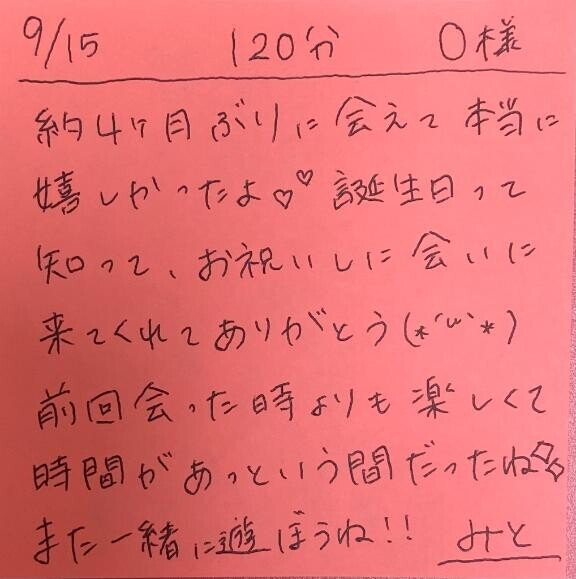 9/15 120分 O様
約4ヶ月ぶりに会えて本当に
嬉しかったよ♡♡誕生日って
知って、お祝いしに会いに
来てくれてありがとう(*´ω`*)
前回会った時よりも楽しくて
時間があっという間だったね
また一緒に遊ぼうね!! みと